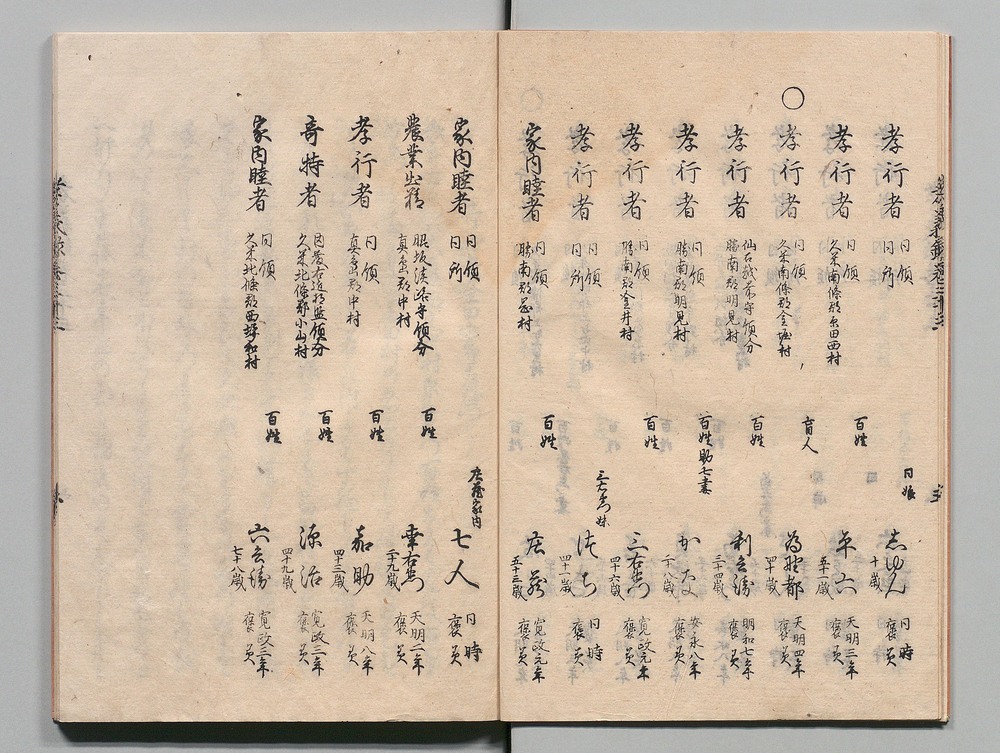 孝行者 同領 同所 同娘 志ゆん 十歳 同時 褒美
孝行者 同領 久米南條郡原田西村 百姓 平六 五十一歳 天明三年 褒美
○ 孝行者 同領 久米南條郡金堀村 盲人 都 四十歳 天明四年 褒美
孝行者 仙石越前守領分 勝南郡明見村 百姓 利兵衛 三十四歳 明和七年 褒美
孝行者 同領 勝南郡明見村 百姓助七妻 か 二十八歳 安永八年 褒美
孝行者 同領 勝南郡金井村 百姓 三右衛門 四十六歳 寛政元年 褒美
孝行者 同領 同所 三右衛門妹 ち 四十一歳 同時 褒美
家内睦者 同領 勝南郡村 百姓 庄蔵 五十三歳 寛政元年 褒美
家内睦者 同領 同所 庄蔵家内 七人 同時 褒美
農業出精 脇坂淡路守領分 真嶋郡中村 百姓 幸右衛門 三十九歳 天明二年 褒美
孝行者 同領 真嶋郡中村 百姓 嘉助 四十三歳 天明八年 褒美
奇特者 右近将監領分 久米北條郡小山村 百姓 源治 四十九歳 寛政三年 褒美
家内睦者 同領 久米北條郡西垪和村 百姓 六兵衛 七十八歳 寛政三年 褒美